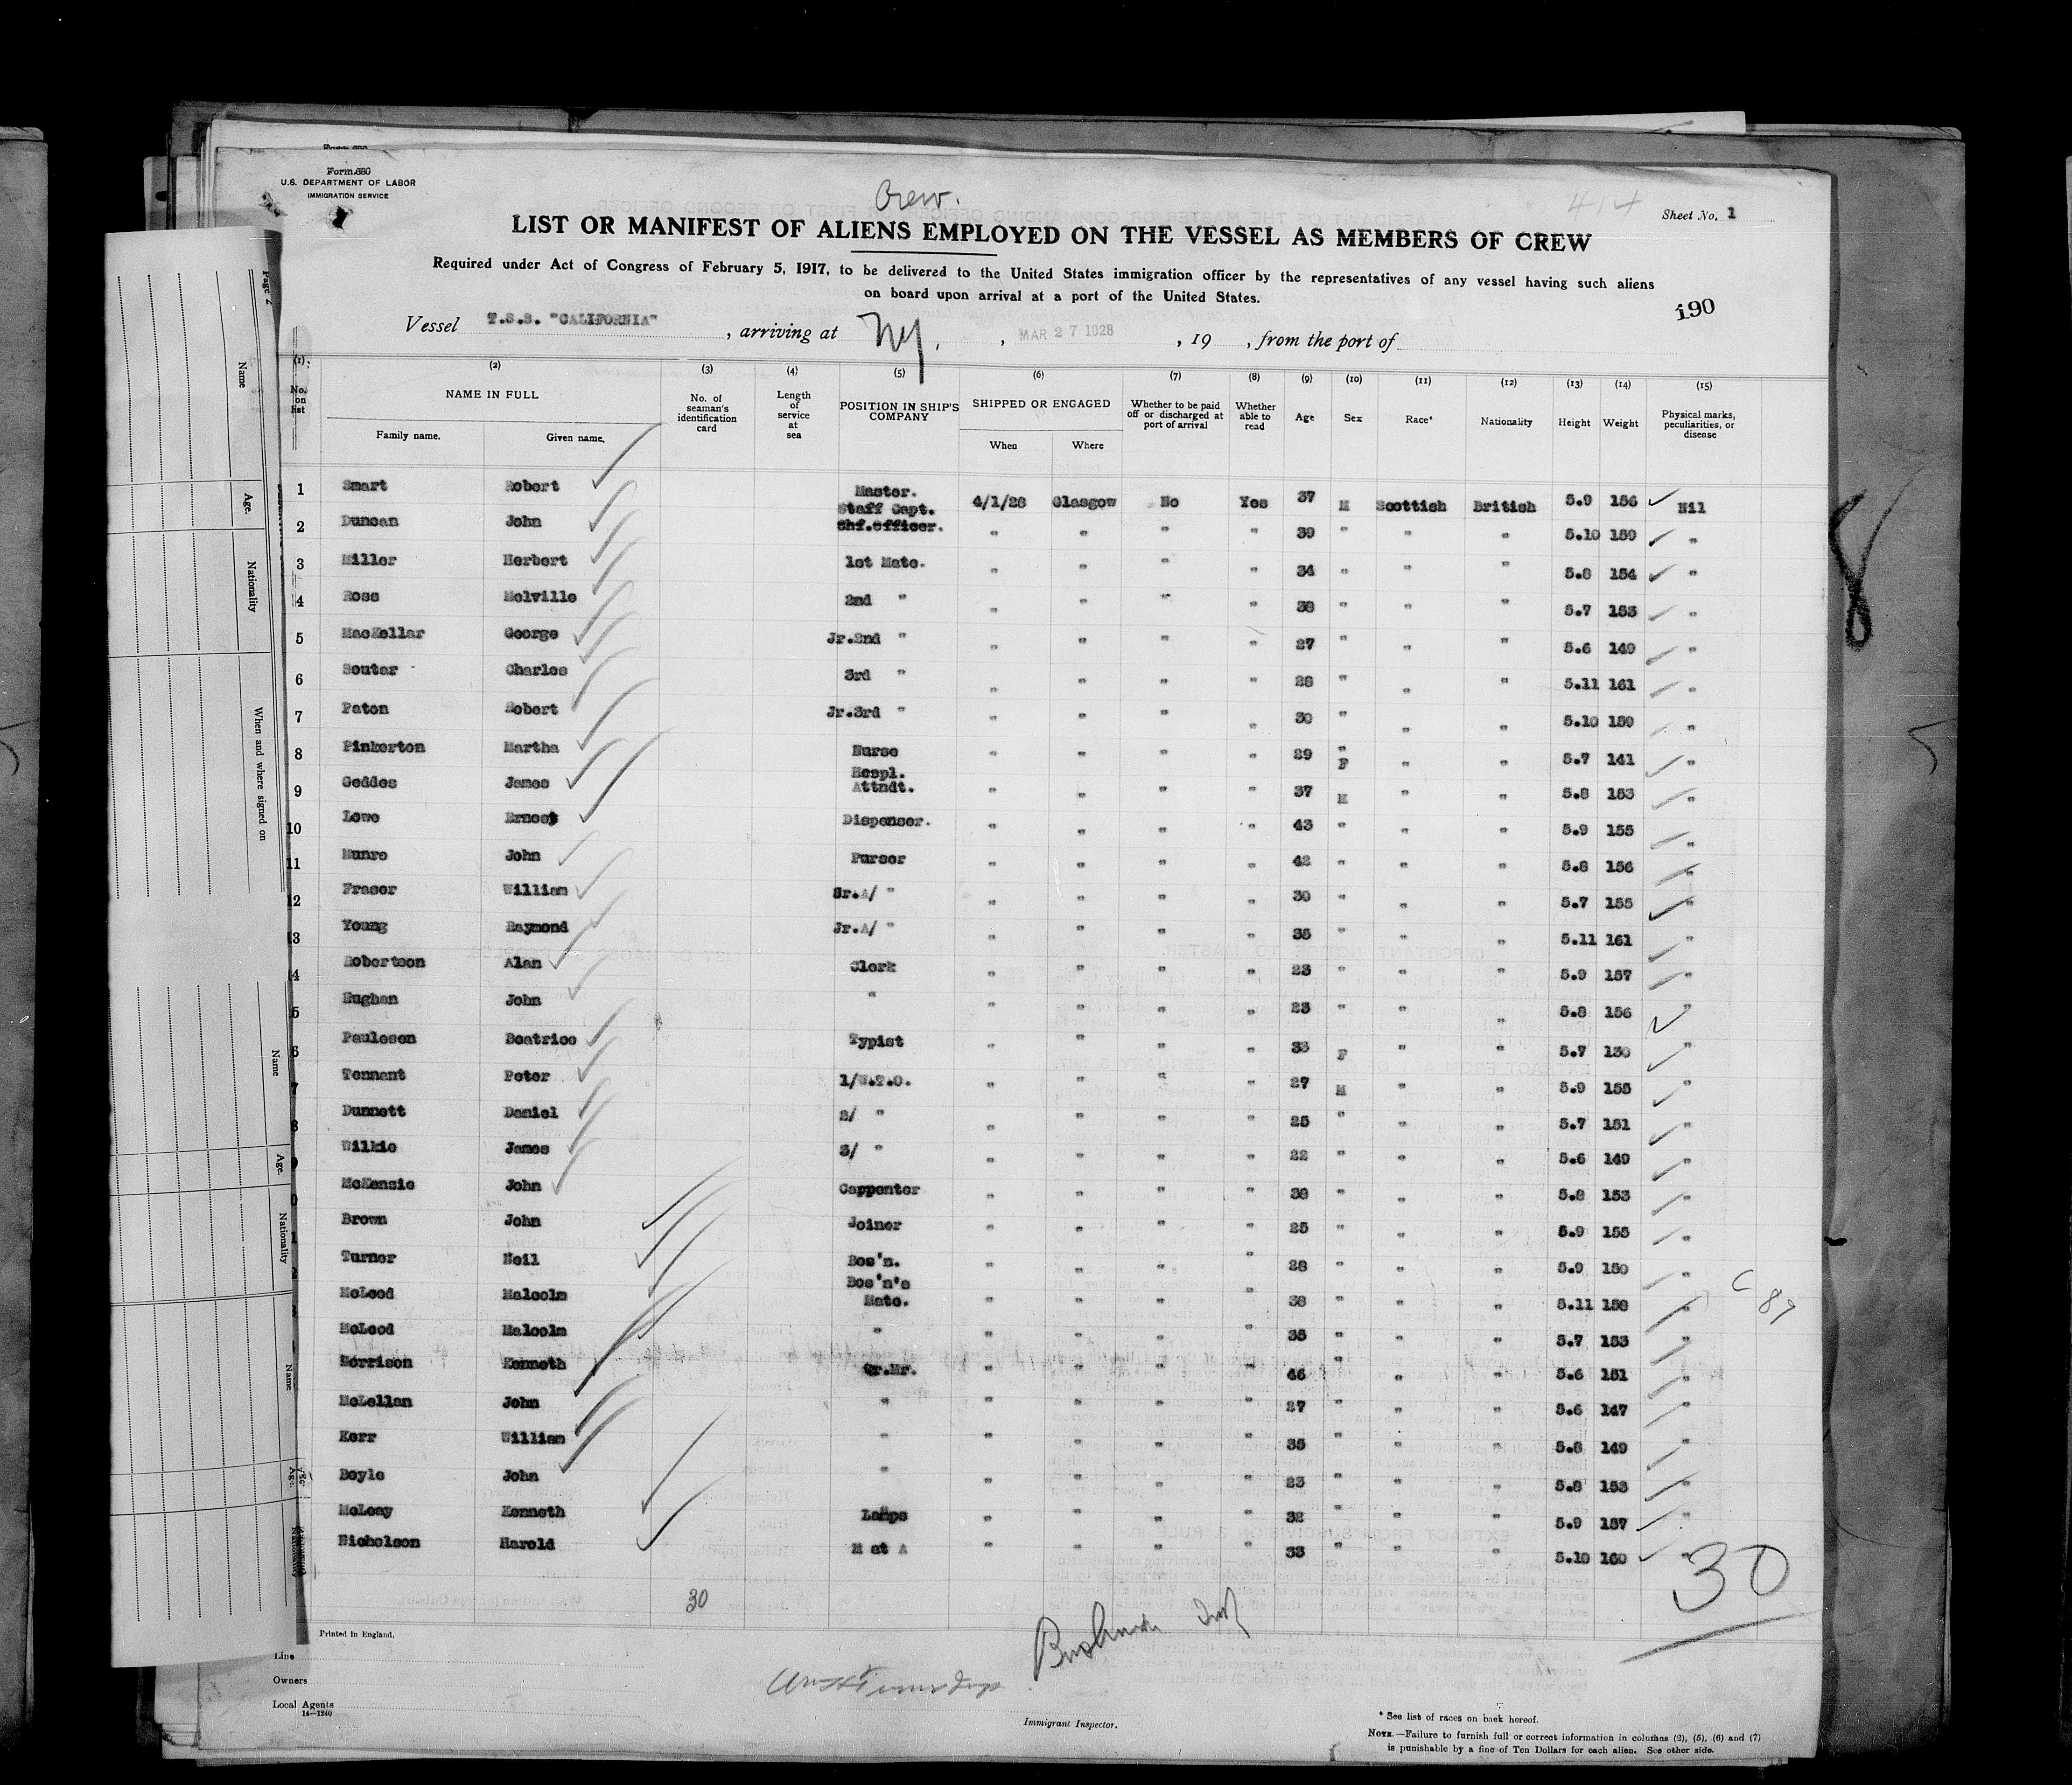 Form 680
U.S. DEPARTMENT OF LABOR
IMMIGRATION SERVICE
Crew.
414
Sheet No. 1
LIST OR MANIFEST OF ALIENS EMPLOYED ON THE VESSEL AS MEMBERS OF CREW
Required under Act of Congress of February 5, 1917, to be delivered to the United States immigration officer by the representatives of any vessel having such aliens
on board upon arrival at a port of the United States.
190
Vessel T.S.S. "CALIFORNIA", arriving at NY, MAR 27 1928, 19 , from the port of
(1) (2) (3) (4) (5) (6) (7) (8) (9) (10) (11) (12) (13) (14) (15)
No. on list NAME IN FULL Family name. Given name. No. of seaman's identification card Length of service at sea POSITION IN SHIP'S COMPANY SHIPPED OR ENGAGED When Where Whether to be paid off or discharged at port of arrival Whether able to read Age Sex Race* Nationality Height Weight Physical marks, peculiarities, or disease
1 Smart Robert Master. 4/1/28 Glasgow No Yes 37 M Scottish British 5.9 156 Nil
2 Duncan John Staff Capt. Chf.officer. " " " " 39 " " " 5.10 159 "
3 Miller Herbert 1st Mate. " " " " 34 " " " 5.8 154 "
4 Ross Melville 2nd " " " " " 38 " " " 5.7 153 "
5 MacKellar George Jr.2nd " " " " " 27 " " " 5.6 149 "
6 Soutar Charles 3rd " " " " " 28 " " " 5.11 161 "
7 Paton Robert Jr.3rd " " " " " 30 " " " 5.10 159 "
8 Pinkerton Martha Nurse " " " " 29 F " " 5.7 141 "
9 Geddes James Hospl. Attndt. " " " " 37 M " " 5.8 153 "
10 Lowe Ernest Dispenser. " " " " 43 " " " 5.9 155 "
11 Munro John Purser " " " " 42 " " " 5.8 156 "
12 Fraser William Sr.A/ " " " " " 30 " " " 5.7 155 "
13 Young Raymond Jr.A/ " " " " " 35 " " " 5.11 161 "
4 Robertson Alan Clerk " " " " 23 " " " 5.9 157 "
5 Hughan John " " " " " 23 " " " 5.8 156 "
6 Pauleson Beatrice Typist " " " " 33 F " " 5.7 130 "
7 Tennant Peter 1/W.T.O. " " " " 27 M " " 5.9 155 "
8 Dunnett Daniel 2/ " " " " " 25 " " " 5.7 151 "
9 Wilkie James 3/ " " " " " 22 " " " 5.6 149 "
0 McKenzie John Carpenter " " " " 38 " " " 5.8 153 "
1 Brown John Joiner " " " " 25 " " " 5.9 155 "
2 Turner Neil Bos'n. " " " " 28 " " " 5.9 150 "
3 McLeod Malcolm Bos'n's Mate. " " " " 38 " " " 5.11 158 "
McLeod Malcolm " " " " " 35 " " " 5.7 153 "
Morrison Kenneth Qr.Mr. " " " " 46 " " " 5.6 151 "
McLellan John " " " " " 27 " " " 5.6 147 "
Kerr William " " " " " 35 " " " 5.8 149 "
Boyle John " " " " " 23 " " " 5.8 153 "
McLeay Kenneth Lamps " " " " 32 " " " 5.9 157
Nicholson Harold M at A " " " " 33 " " " 5.10 160 "
C 89
30
30
Printed in England.
Line
Owners
Local Agents
14—1240
Immigrant Inspector.
* See list of races on back hereof.
NOTE.—Failure to furnish full or correct information in columns (2), (5), (6) and (7)
is punishable by a fine of Ten Dollars for each alien. See other side.
Page 2
Name
Age.
Nationality
When and where signed on
Name
Age.
Nationality
Name
Age.
Nationality